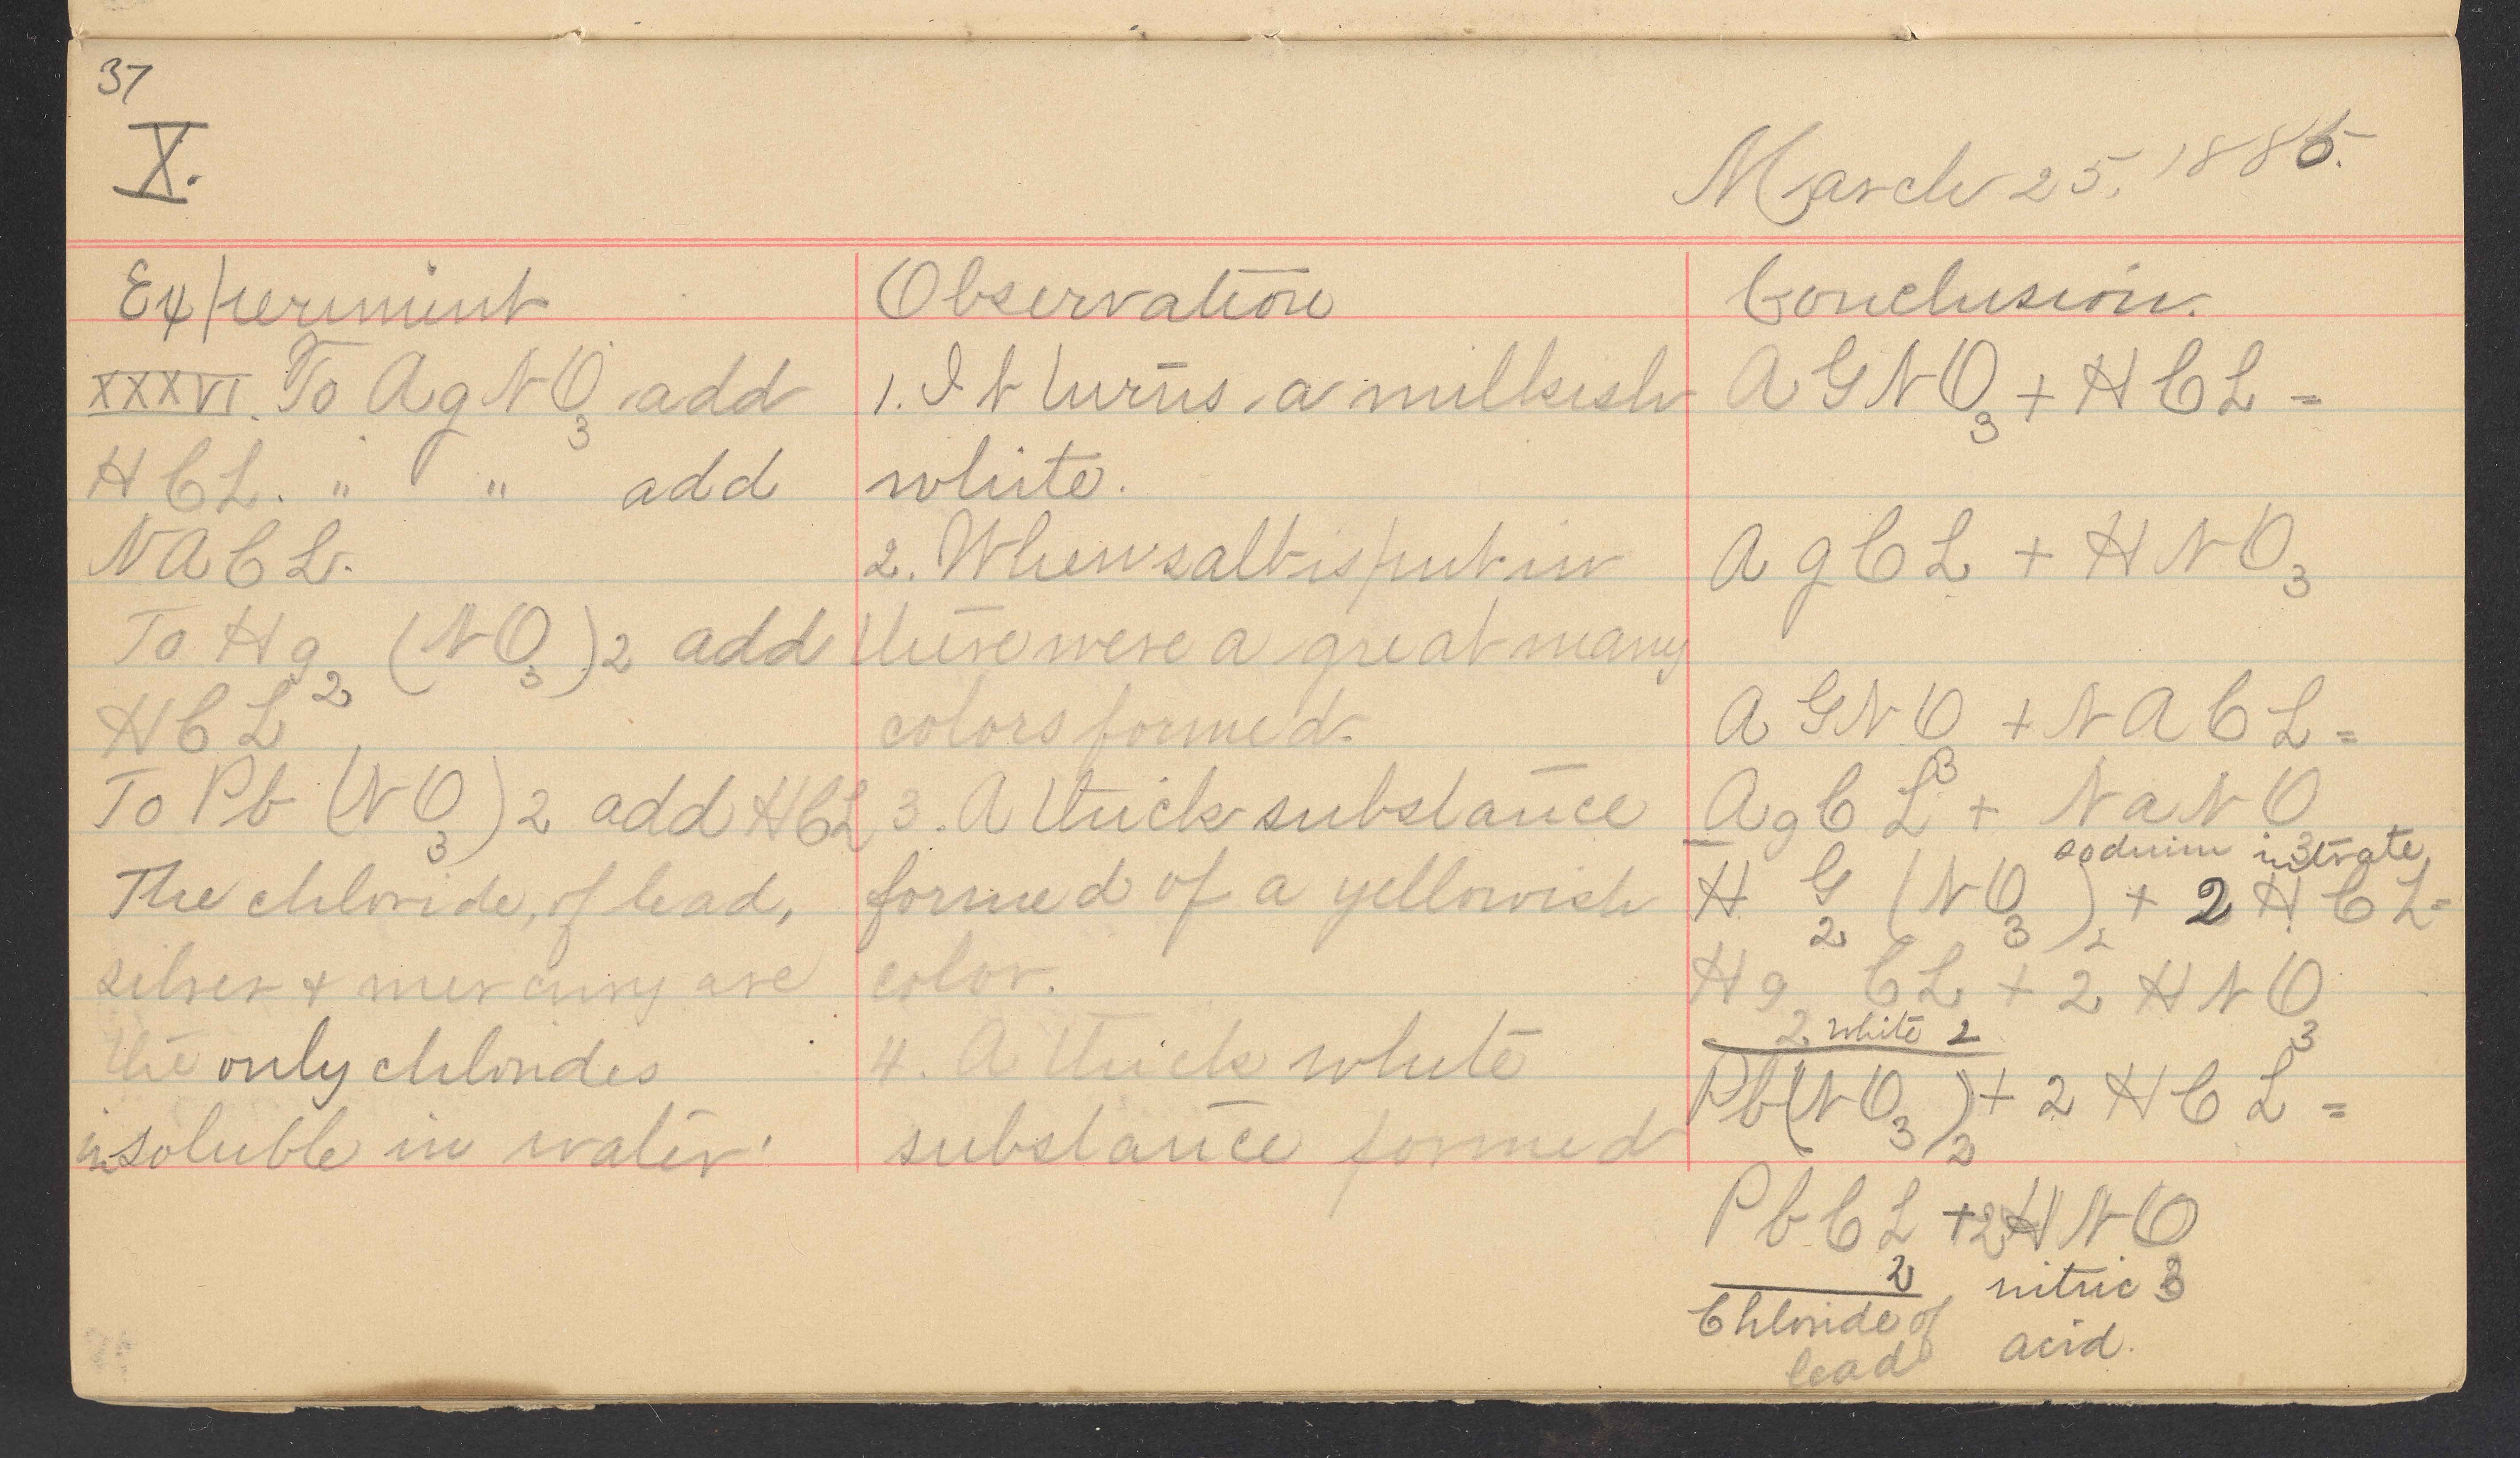 37
X.
March 25, 1886.
Experiment
XXXVI. To AgNO3 add
HCL. " " add
NACL.
To Hg2 (NO3)2 add
HCL
To Pb (NO3)2 add HCL
The chloride, of lead,
silver + mercury are
the only chlorides
insoluble in water.
Observation
1. It turns a milkish
white.
2. When salt is put in
there were a great many
colors formed.
3. A thick substance
formed of a yellowish
color.
4. A thick white
substance formed
Conclusion.
AGNO3 + HCL =
AgCL + HNO3
AGNO3 + NACL =
AgCL + NaNO3
sodium nitrate
HG2 (NO3)2 + 2HCL =
Hg2CL2 + 2HNO3
white
Pb(NO3)2 + 2HCL =
PbCL2 + 2HNO3
Chloride of nitric
lead acid.